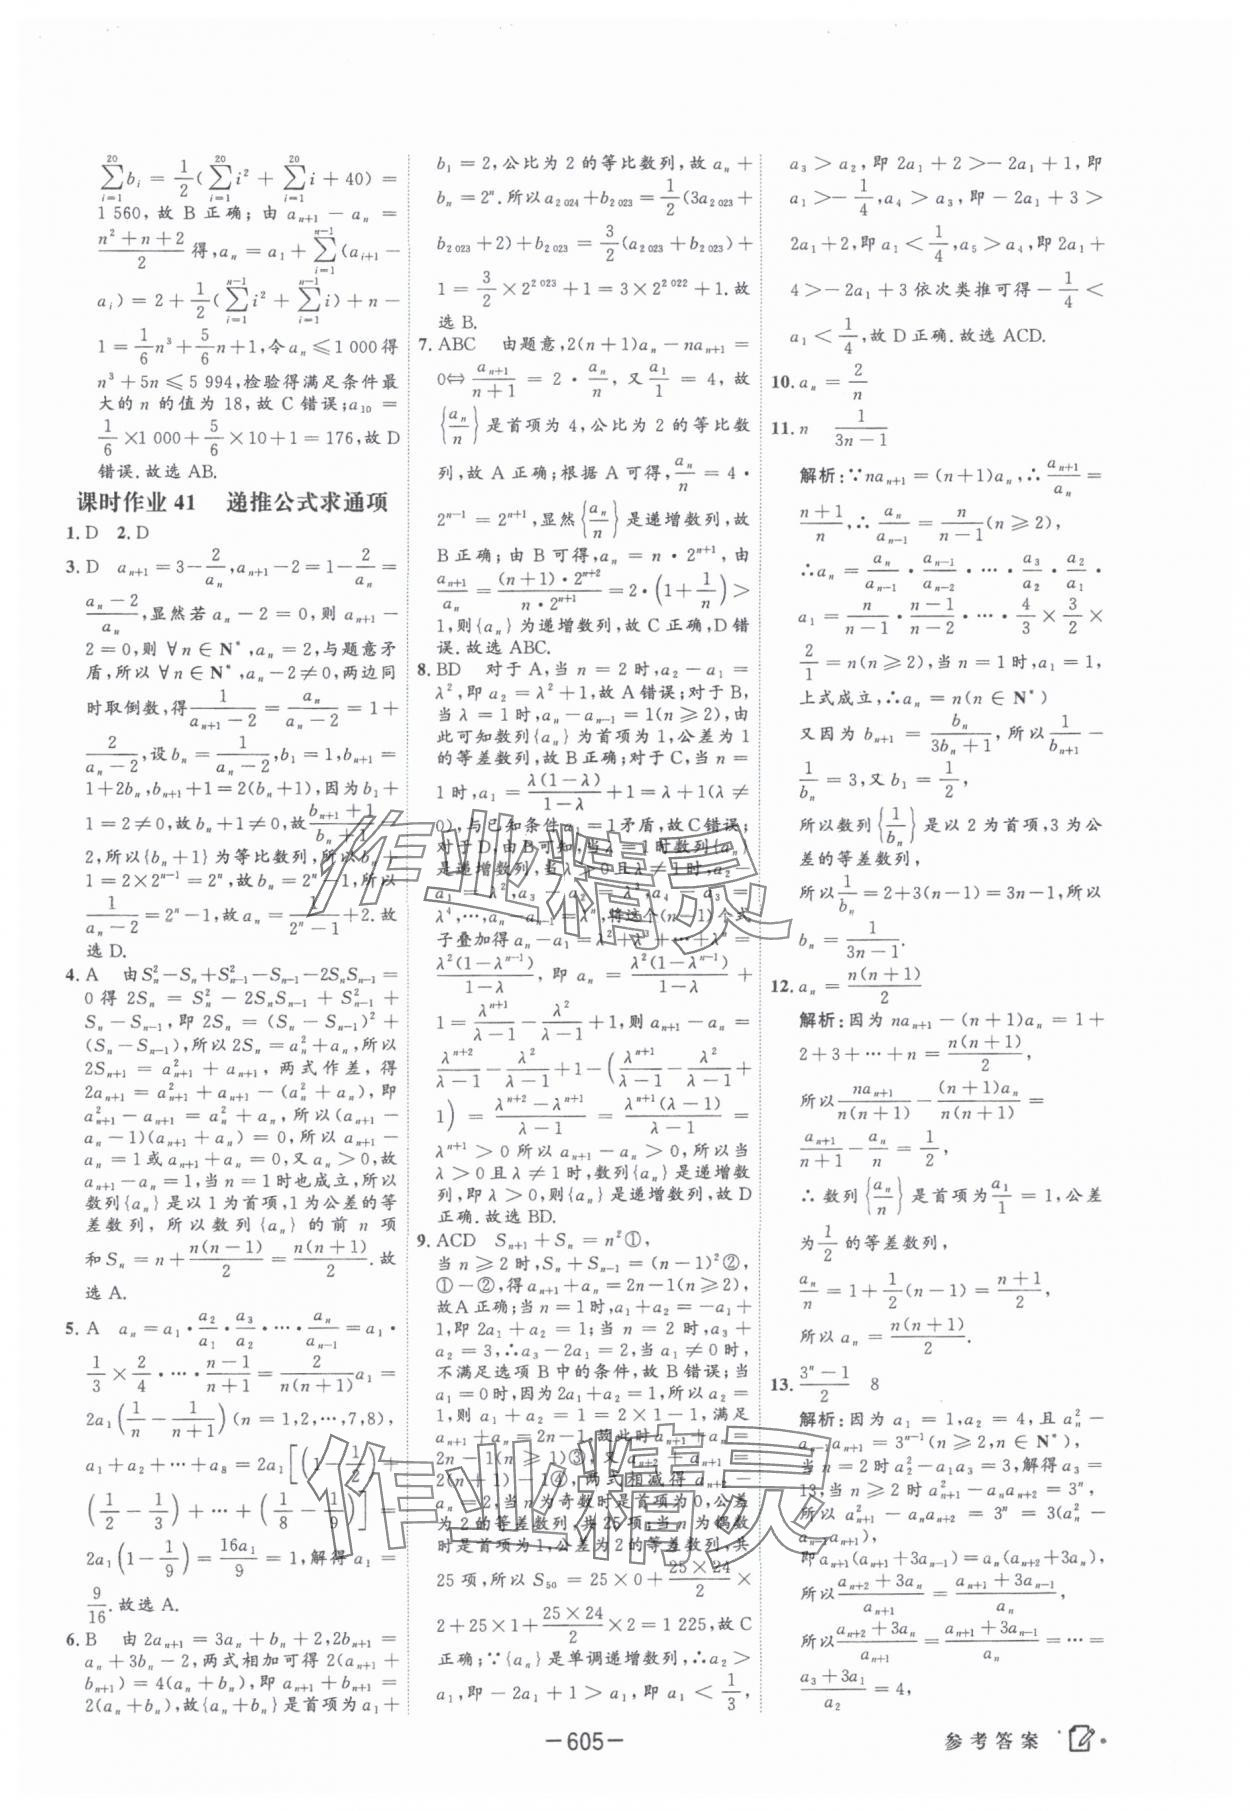 ∑_{i=1}^{20} b_i = 1/2(∑_{i=1}^{20} i² + ∑_{i=1}^{20} i + 40) =
1 560,故 B 正确;由 a_{n+1} − a_n =
(n²+n+2)/2 得,a_n = a_1 + ∑_{i=1}^{n−1}(a_{i+1} −
a_i) = 2 + 1/2(∑_{i=1}^{n−1} i² + ∑_{i=1}^{n−1} i) + n −
1 = 1/6 n³ + 5/6 n + 1,令 a_n ≤ 1 000 得
n³ + 5n ≤ 5 994,检验得满足条件最
大的 n 的值为 18,故 C 错误;a_{10} =
1/6 × 1 000 + 5/6 × 10 + 1 = 176,故 D
错误.故选 AB.
课时作业 41 递推公式求通项
1. D 2. D
3. D a_{n+1} = 3 − 2/a_n, a_{n+1} − 2 = 1 − 2/a_n =
(a_n − 2)/a_n,显然若 a_n − 2 = 0,则 a_{n+1} −
2 = 0,则 ∀n ∈ N*, a_n = 2,与题意矛
盾,所以 ∀n ∈ N*, a_n − 2 ≠ 0,两边同
时取倒数,得 1/(a_{n+1} − 2) = a_n/(a_n − 2) = 1 +
2/(a_n − 2),设 b_n = 1/(a_n − 2), b_1 = 1, b_{n+1} =
1 + 2b_n, b_{n+1} + 1 = 2(b_n + 1),因为 b_1 +
1 = 2 ≠ 0,故 b_n + 1 ≠ 0,故 (b_{n+1} + 1)/(b_n + 1) =
2,所以{b_n + 1}为等比数列,所以 b_n +
1 = 2 × 2^{n−1} = 2^n,故 b_n = 2^n − 1,所以
1/(a_n − 2) = 2^n − 1,故 a_n = 1/(2^n − 1) + 2.故
选 D.
4. A 由 S_n² − S_n + S_{n−1}² − S_{n−1} − 2S_nS_{n−1} =
0 得 2S_n = S_n² − 2S_nS_{n−1} + S_{n−1}² +
S_n − S_{n−1},即 2S_n = (S_n − S_{n−1})² +
(S_n − S_{n−1}),所以 2S_n = a_n² + a_n,所以
2S_{n+1} = a_{n+1}² + a_{n+1},两式作差,得
2a_{n+1} = a_{n+1}² + a_{n+1} − (a_n² + a_n),即
a_{n+1}² − a_{n+1} = a_n² + a_n,所以(a_{n+1} −
a_n − 1)(a_{n+1} + a_n) = 0,所以 a_{n+1} −
a_n = 1 或 a_{n+1} + a_n = 0,又 a_n > 0,故
a_{n+1} − a_n = 1,当 n = 1 时也成立,所以
数列{a_n}是以 1 为首项,1 为公差的等
差数列,所以数列{a_n}的前 n 项
和 S_n = n + n(n − 1)/2 = n(n + 1)/2.故
选 A.
5. A a_n = a_1 · a_2/a_1 · a_3/a_2 · … · a_n/a_{n−1} = a_1 ·
1/3 × 2/4 · … · (n − 1)/(n + 1) = 2/(n(n + 1)) a_1 =
2a_1(1/n − 1/(n + 1))(n = 1,2,…,7,8),
a_1 + a_2 + … + a_8 = 2a_1[(1 − 1/2) +
(1/2 − 1/3) + … + (1/8 − 1/9)] =
2a_1(1 − 1/9) = 16a_1/9 = 1,解得 a_1 =
9/16.故选 A.
6. B 由 2a_{n+1} = 3a_n + b_n + 2, 2b_{n+1} =
a_n + 3b_n − 2,两式相加可得 2(a_{n+1} +
b_{n+1}) = 4(a_n + b_n),即 a_{n+1} + b_{n+1} =
2(a_n + b_n),故{a_n + b_n}是首项为 a_1 +
b_1 = 2,公比为 2 的等比数列,故 a_n +
b_n = 2^n.所以 a_{2 024} + b_{2 023} = 1/2(3a_{2 023} +
b_{2 023} + 2) + b_{2 023} = 3/2(a_{2 023} + b_{2 023}) +
1 = 3/2 × 2^{2 023} + 1 = 3 × 2^{2 022} + 1.故
选 B.
7. ABC 由题意,2(n + 1)a_n − na_{n+1} =
0 ⇔ a_{n+1}/(n + 1) = 2 · a_n/n,又 a_1/1 = 4,故
{a_n/n}是首项为 4,公比为 2 的等比数
列,故 A 正确;根据 A 可得,a_n/n = 4 ·
2^{n−1} = 2^{n+1},显然{a_n/n}是递增数列,故
B 正确;由 B 可得,a_n = n · 2^{n+1},由
a_{n+1}/a_n = (n + 1) · 2^{n+2}/(n · 2^{n+1}) = 2 · (1 + 1/n) >
1,则{a_n}为递增数列,故 C 正确,D 错
误.故选 ABC.
8. BD 对于 A,当 n = 2 时,a_2 − a_1 =
λ²,即 a_2 = λ² + 1,故 A 错误;对于 B,
当 λ = 1 时,a_n − a_{n−1} = 1(n ≥ 2),由
此可知数列{a_n}为首项为 1,公差为 1
的等差数列,故 B 正确;对于 C,当 n =
1 时,a_1 = λ(1 − λ)/(1 − λ) = λ + 1(λ ≠
0),与已知条件 a_1 = 1 矛盾,故 C 错误;
对于 D,由 B 可知,当 λ = 1 时数列{a_n}
是递增数列,当 λ > 0 且 λ ≠ 1 时,a_2 −
a_1 = λ², a_3 − a_2 = λ³, a_4 − a_3 =
λ⁴,…,a_n − a_{n−1} = λ^n,将这个(n − 1)个式
子叠加得 a_n − a_1 = λ² + λ³ + … + λ^n =
λ²(1 − λ^{n−1})/(1 − λ),即 a_n = λ²(1 − λ^{n−1})/(1 − λ) +
1 = λ^{n+1}/(λ − 1) − λ²/(λ − 1) + 1,则 a_{n+1} − a_n =
λ^{n+2}/(λ − 1) − λ²/(λ − 1) + 1 − (λ^{n+1}/(λ − 1) − λ²/(λ − 1) +
1) = (λ^{n+2} − λ^{n+1})/(λ − 1) = λ^{n+1}(λ − 1)/(λ − 1) =
λ^{n+1} > 0 所以 a_{n+1} − a_n > 0,所以当
λ > 0 且 λ ≠ 1 时,数列{a_n}是递增数
列,即 λ > 0,则{a_n}是递增数列,故 D
正确.故选 BD.
9. ACD S_{n+1} + S_n = n²①,
当 n ≥ 2 时,S_n + S_{n−1} = (n − 1)²②,
①−②,得 a_{n+1} + a_n = 2n − 1(n ≥ 2),
故A正确;当 n = 1 时,a_1 + a_2 = −a_1 +
1,即 2a_1 + a_2 = 1;当 n = 2 时,a_3 +
a_2 = 3,∴a_3 − 2a_1 = 2,当 a_1 ≠ 0 时,
不满足选项 B 中的条件,故 B 错误;当
a_1 = 0 时,因为 2a_1 + a_2 = 1,所以 a_2 =
1,则 a_1 + a_2 = 1,满足
a_{n+1} + a_n = 2n − 1,故此时 a_{n+1} + a_n =
2n − 1(n ≥ 1)③,又 a_{n+2} + a_{n+1} =
2(n + 1) − 1④,两式相减得 a_{n+2} −
a_n = 2,当 n 为奇数时是首项为 0,公差
为 2 的等差数列,共 25 项;当 n 为偶数
时是首项为 1,公差为 2 的等差数列,共
25 项,所以 S_{50} = 25 × 0 + (25 × 24)/2 ×
2 + 25 × 1 + (25 × 24)/2 × 2 = 1 225,故 C
正确;∵{a_n}是单调递增数列,∴a_2 >
a_1,即 −2a_1 + 1 > a_1,即 a_1 < 1/3,
a_3 > a_2,即 2a_1 + 2 > −2a_1 + 1,即
a_1 > −1/4, a_4 > a_3,即 −2a_1 + 3 >
2a_1 + 2,即 a_1 < 1/4, a_5 > a_4,即 2a_1 +
4 > −2a_1 + 3 依次类推可得 −1/4 <
a_1 < 1/4,故 D 正确.故选 ACD.
10. a_n = 2/n
11. n 1/(3n − 1)
解析:∵na_{n+1} = (n + 1)a_n,∴a_{n+1}/a_n =
(n + 1)/n,∴a_n/a_{n−1} = n/(n − 1)(n ≥ 2),
∴a_n = a_n/a_{n−1} · a_{n−1}/a_{n−2} · … · a_3/a_2 · a_2/a_1 ·
a_1 = n/(n − 1) · (n − 1)/(n − 2) · … · 4/3 × 3/2 ×
2/1 = n(n ≥ 2),当 n = 1 时,a_1 = 1,
上式成立,∴a_n = n(n ∈ N*)
又因为 b_{n+1} = b_n/(3b_n + 1),所以 1/b_{n+1} −
1/b_n = 3,又 b_1 = 1/2,
所以数列{1/b_n}是以 2 为首项,3 为公
差的等差数列,
所以 1/b_n = 2 + 3(n − 1) = 3n − 1,所以
b_n = 1/(3n − 1).
12. a_n = n(n + 1)/2
解析:因为 na_{n+1} − (n + 1)a_n = 1 +
2 + 3 + … + n = n(n + 1)/2,
所以 na_{n+1}/(n(n + 1)) − (n + 1)a_n/(n(n + 1)) =
a_{n+1}/(n + 1) − a_n/n = 1/2,
∴数列{a_n/n}是首项为 a_1/1 = 1,公差
为 1/2 的等差数列,
a_n/n = 1 + 1/2(n − 1) = (n + 1)/2,
所以 a_n = n(n + 1)/2.
13. (3^n − 1)/2 8
解析:因为 a_1 = 1, a_2 = 4,且 a_n² −
a_{n−1}a_{n+1} = 3^{n−1}(n ≥ 2, n ∈ N*),
当 n = 2 时 a_2² − a_1a_3 = 3,解得 a_3 =
13,当 n ≥ 2 时 a_{n+1}² − a_na_{n+2} = 3^n,
所以 a_{n+1}² − a_na_{n+2} = 3^n = 3(a_n² −
a_{n−1}a_{n+1}),
即 a_{n+1}(a_{n+1} + 3a_{n−1}) = a_n(a_{n+2} + 3a_n),
所以 (a_{n+2} + 3a_n)/a_{n+1} = (a_{n+1} + 3a_{n−1})/a_n,
所以 (a_{n+2} + 3a_n)/a_{n+1} = (a_{n+1} + 3a_{n−1})/a_n = … =
(a_3 + 3a_1)/a_2 = 4,
作业精灵
作业精灵
−605−
参考答案